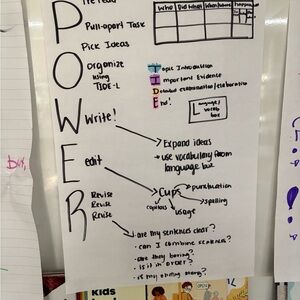 P
Pre read
Pull-apart Task
Who | Did What | When/Where
Pick Ideas
O
Organize
using
TIDE-L
Topic Introduction
Important Evidence
Detailed examination/elaboration
End!
Language/
vocab
box
W
Write!
Expand ideas
use vocabulary from
language box
E
edit
Cups
punctuation
spelling
usage
capitals
R
Revise
Revise
Revise
are my sentences clear?
can I combine sentences?
are they boring?
is it in ORDER?
is my opinion strong?
but,
Kids